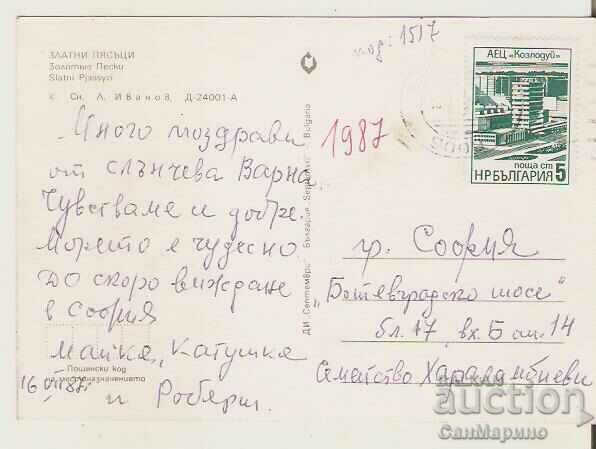 ЗЛАТНИ ПЯСЪЦИ
Золотые Пески
Slatni Pjassyzi
к. Сн. Л. Иванов, Д-24001-А
код: 1517
АЕЦ „Козлодуй“
поща ст 5
НР БЪЛГАРИЯ
Много поздрави
от слънчева Варна.
Чувстваме се добре.
Морето е чудесно
До скоро виждане
в София
Майка, Катушка
и Роберт.
16 VII 87г
1987
Пощенски код
на местоназначението
ДИ „Септември“ България Bulgaria
гр. София
„Ботевградско шосе“
бл. 17, вх. Б ап. 14
Семейство Хараламбиеви
auction
СанМарино